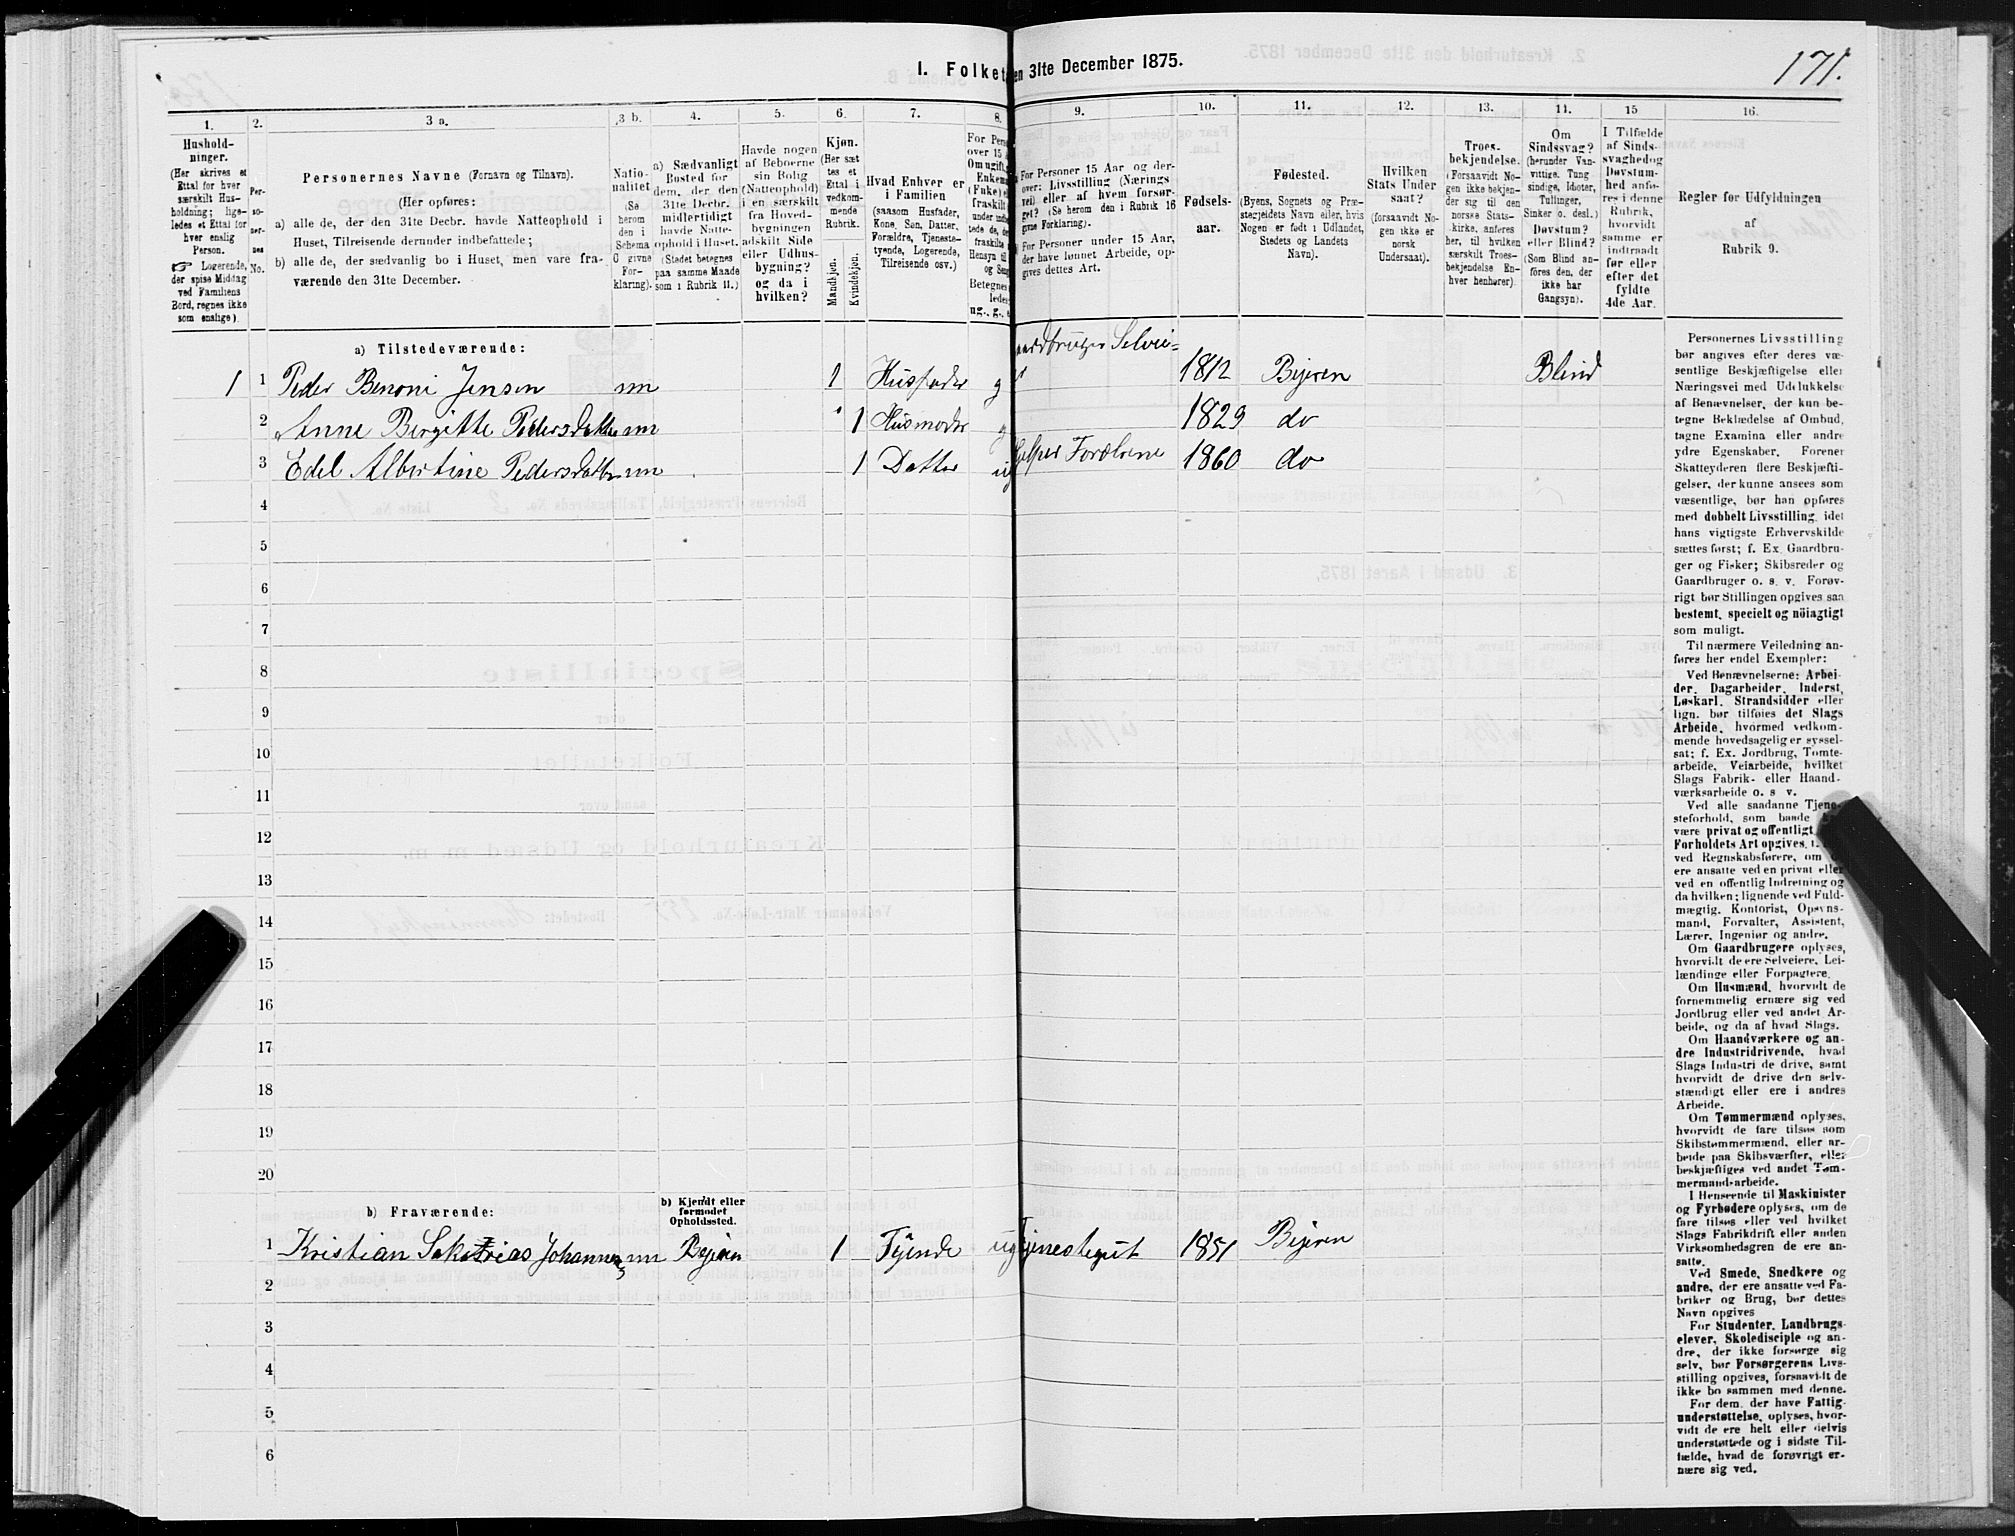 I. Folketæ en 31te December 1875.
171.
1. 2. 3 a. 3 b. 4. 5. 6. 7. 8. 9. 10. 11. 12. 13. 14. 15 16.
Hushold-
ninger.
(Her skrives et
Ettal for hver
særskilt Hus-
holdning; lige-
ledes et Ettal for
hver enslig
Person.
☞ Logerende,
der spise Middag
ved Familiens
Bord, regnes ikke
som enslige).
Per-
so-
ner-
nes
No.
Personernes Navne (Fornavn og Tilnavn).
(Her opføres:
a) alle de, der den 31te Decbr. havde Natteophold i
Huset, Tilreisende derunder indbefattede;
b) alle de, der sædvanlig bo i Huset, men vare fra-
værende den 31te December.
Natio-
nalitet
(Se
herom
den i
Schema
C givne
For-
klaring).
a) Sædvanligt
Bosted for
dem, der den
31te Decbr.
midlertidigt
havde Natte-
ophold i Huset.
(Stedet betegnes
paa samme Maade
som i Rubrik 11.)
Havde nogen
af Beboerne
sin Bolig
(Natteophold)
i en særskilt
fra Hoved-
bygningen
adskilt Side
eller Udhus-
bygning?
og da i
hvilken?
Kjøn.
(Her sæt
tes et
Ettal i
vedkom-
mende
Rubrik.
Mandkjøn.
Kvindekjøn.
Hvad Enhver er
i Familien
(saasom Husfader,
Kone, Søn, Datter,
Forældre, Tjeneste-
tyende, Logerende,
Tilreisende osv.)
For Pers
over 15
Om ugift,
Enkem
(Fuke) e
fraskilt
under indt
tede de, de
fraskilte
Hensyn til
og Sen
Betegnes
ledes
ug., g., e
For Personer 15 Aar og der-
over: Livsstilling (Nærings-
vei) eller af hvem forsør-
get? (Se herom den i Rubrik 16
givne Forklaring).
For Personer under 15 Aar,
der have lønnet Arbeide, op-
gives dettes Art.
Fødsels-
aar.
Fødested.
(Byens, Sognets og Præ-
stegjeldets Navn eller, hvis
Nogen er født i Udlandet,
Stedets og Landets
Navn).
Hvilken
Stats Under
saat?
(forsaavidt No-
gen ikke er
norsk
Undersaat).
Troes-
bekjendelse.
(Forsaavidt No-
gen ikke bekjen-
der sig til den
norske Stats-
kirke, anføres
her, til hvilken
særskilt Troes-
bekjendelse En-
hver henhører).
Om
Sindssvag?
(herunder Van-
vittige, Tung
sindige, Idioter,
Tullinger,
Sinker o. desl.)
Døvstum?
eller Blind?
(Som Blind an-
føres den, der
ikke har
Gangsyn).
I Tilfælde
af Sinds-
svaghed og
Døvstum-
hed anfø-
res i denne
Rubrik,
hvorvidt
samme er
indtraadt
før eller
efter det
fyldte
4de Aar.
Regler for Udfyldningen
af
Rubrik 9.
a) Tilstedeværende:
aardbruger Selvei-
1 1 Peder Benoni Jensen nn 1 Husfader g r 1812 Bejeren Blind
2 Anne Bergitte Pedersdatter nn 1 Husmoder g 1829 do
3 Edel Albertine Pedersdatter nn 1 Datter ug hjelper Forældrene 1860 do
4
5
6
7
8
9
10
11
12
13
14
15
16
17
18
19
20
b) Fraværende:
b) Kjendt eller
formodet
Opholdssted.
1 Kristian Sakarias Johannes nn Bejeren 1 Tjende ug Tjenestegut 1851 Bejeren
2
3
4
5
6
Personernes Livsstilling
bør angives efter deres væ-
sentlige Beskjæftigelse eller
Næringsvei med Udelukkelse
af Benævnelser, der kun be-
tegne Beklædelse af Ombud,
tagne Examina eller andre
ydre Egenskaber. Forener
Skatteyderen flere Beskjæfti-
gelser, der kunne ansees som
væsentlige, bør han opføres
med dobbelt Livsstilling, idet
hans vigtigste Erhvervskilde
sættes først; f. Ex. Gaardbru-
ger og Fisker; Skibsreder og
Gaardbruger o. s. v. Forøv-
rigt bør Stillingen opgives saa
bestemt, specielt og nöiagtigt
som muligt.
Til nærmere Veiledning an-
føres her endel Exempler:
Ved Benævnelserne: Arbei-
der, Dagarbeider, Inderst,
Løskarl, Strandsidder eller
lign. bør tilføies det Slags
Arbeide, hvormed vedkom-
mende hovedsagelig er syssel-
sat; f. Ex. Jordbrug, Tomte-
arbeide, Veiarbeide, hvilket
Slags Fabrik- eller Haand-
værksarbeide o. s v.
Ved alle saadanne Tjene-
steforhold, som baade
være privat og offentligt,
Forholdets Art opgives,
ved Regnskabsførere, om
ere ansatte ved en privat eller
ved en offentlig Indretning og
da hvilken; lignende ved Fuld-
mægtig, Kontorist, Opsyns-
mand, Forvalter, Assistent,
Lærer, Ingeniør og andre.
Om Gaardbrugere oplyses,
hvorvidt de ere Selveiere, Lei-
lændinge eller Forpagtere.
Om Husmænd, hvorvidt de
fornemmelig ernære sig ved
Jordbrug eller ved andet Ar-
beide, og da af hvad Slags.
Om Haandværkere og an-
dre Industridrivende, hvad
Slags Industri de drive, samt
hvorvidt de drive den selv-
stændigt eller ere i andres
Arbeide.
Om Tømmermænd oplyses,
hvorvidt de fare tilsøs som
Skibstømmermænd, eller ar-
beide paa Skibsværfter, eller
beskjæftiges ved andet Tøm-
mermandsarbeide.
I Henseende til Maskinister
og Fyrbødere oplyses, om de
fare tilsøs eller ved hvilket
Slags Fabrikdrift eller anden
Virksombedsgren de ere an-
satte.
Ved Smede, Snedkere og
andre, der ere ansatte ved Fa-
briker og Brug, bør dettes
Navn opgives
For Studenter, Landbrugs-
elever, Skoledisciple og an-
dre, der ikke forsørge sig
selv, bør Forsørgerens Livs-
stilling opgives, forsaavidt de
ikke bo sammen med denne.
For dem, der have Fattig-
understøttelse, oplyses, hvor-
vidt de ere helt eller delvis
understøttede og i sidste Til-
fælde, hvad de forøvrigt er-
nære sig ved.